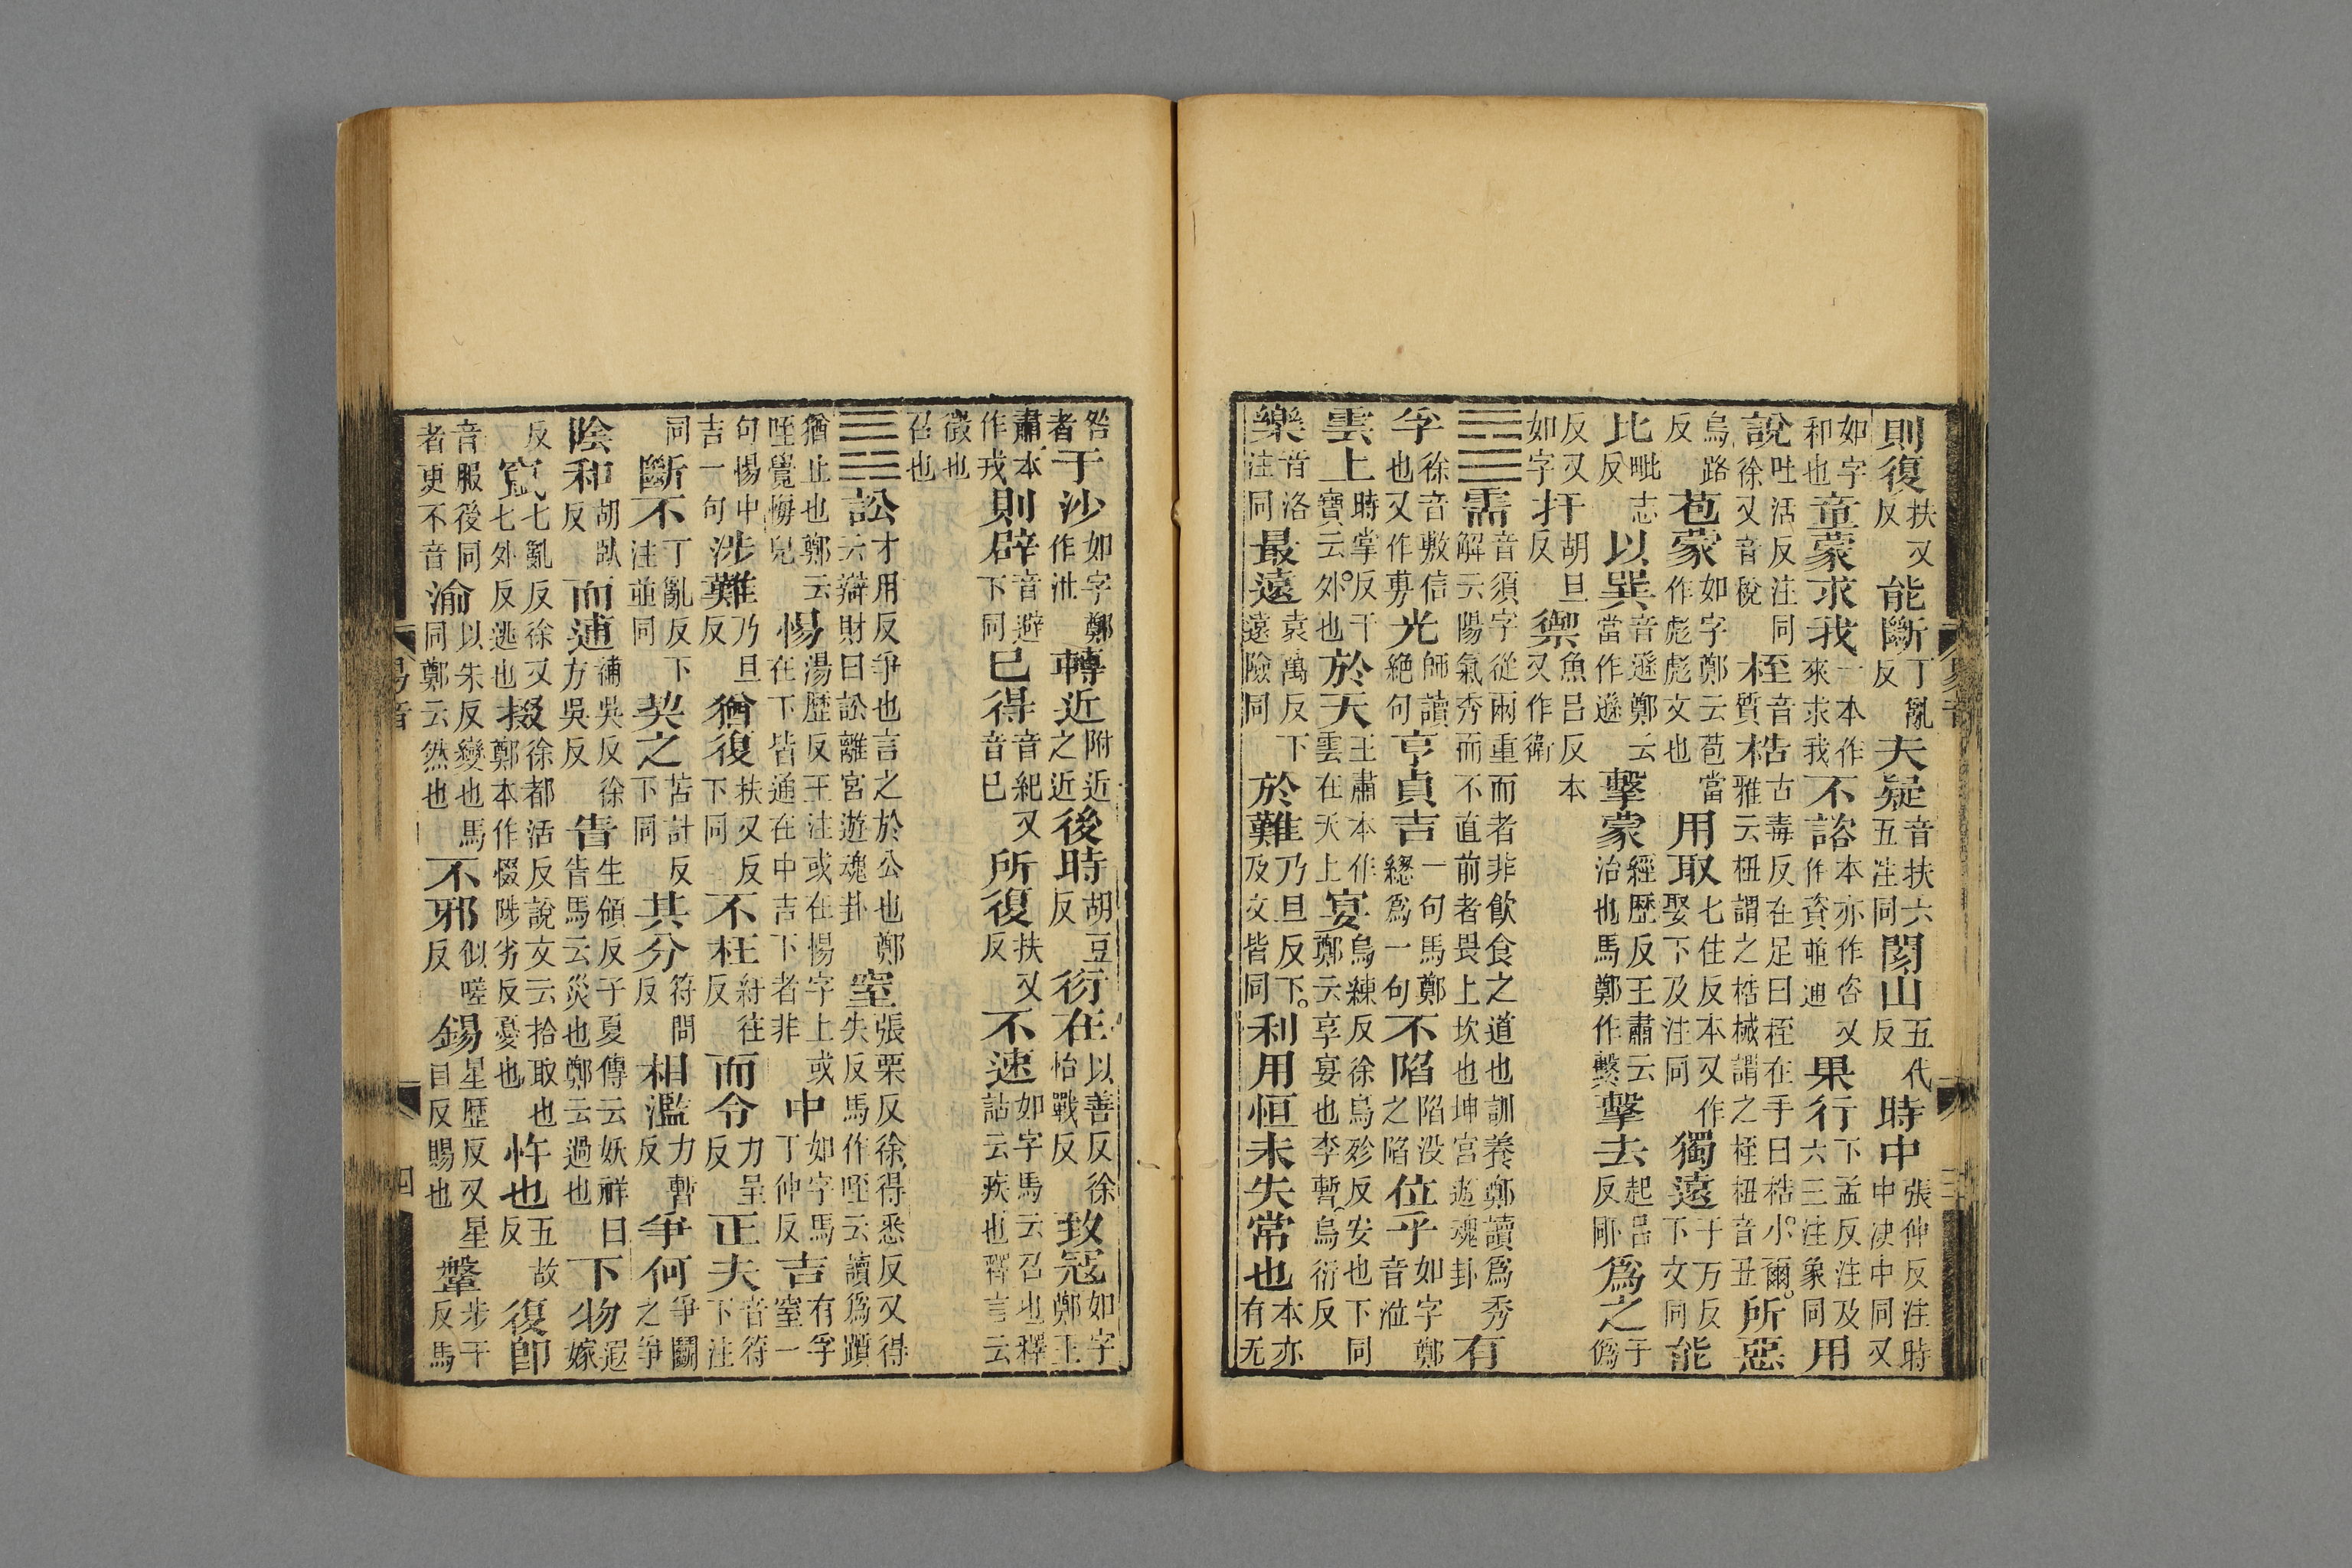 則復扶又反能斷丁亂反夫疑音扶六五注同閡山五代反時中張仲反注時中決中同又
如字和也童蒙求我一本作來求我不諮本亦作咨又作資並通果行下孟反注及六三注象同用
說吐活反注同徐又音稅桎音質梏古毒反在足曰桎在手曰梏小爾雅云杻謂之梏械謂之桎杻音丑所惡
烏路反苞蒙如字鄭云苞當作彪彪文也用取七住反本又作娶下及注同獨遠于万反下文同能
比毗志反以巽音遜鄭云當作遜擊蒙經歷反王肅云治也馬鄭作繫擊去起呂反爲之于僞
反又如字扞胡旦反禦魚呂反本又作衛
䷄需音須字從兩重而者非飲食之道也訓養鄭讀爲秀解云陽氣秀而不直前者畏上坎也坤宮遊魂卦有
孚徐音敷信也又作旉光師讀絕句亨貞吉一句馬鄭總爲一句不陷陷没之陷位乎如字鄭音涖
雲上時掌反干寶云外也於天王肅本作雲在天上宴烏練反徐烏殄反安也下同鄭云享宴也李暫烏衍反
樂音洛注同最遠袁萬反下遠險同於難乃旦反下及文皆同利用恒未失常也本亦有无
咎者于沙如字鄭作沚轉近附近之近後時胡豆反衍在以善反徐怡戰反致寇如字鄭王
肅本作戎則辟音避下同已得音紀又音巳所復扶又反不速如字馬云召也釋詁云疾也釋言云
徵也召也
䷅訟才用反爭也言之於公也鄭云辯財曰訟離宮遊魂卦窒張栗反徐得悉反又得失反馬作咥云讀爲躓
猶止也鄭云咥覺悔皃惕湯歷反王注或在惕字上或在下皆通在中吉下者非中如字馬丁仲反吉有孚窒一
句惕中吉一句涉難乃旦反猶復扶又反下同不枉紆往反而令力呈反正夫音符下注
同斷不丁亂反下注並同契之苦計反下同其分符問反相濫力暫反爭何爭鬭之爭
陰和胡臥反而逋補吳反徐方吳反眚生領反子夏傳云妖祥曰眚馬云災也鄭云過也下物遐嫁
反竄七亂反徐又七外反逃也掇徐都活反說文云拾取也鄭本作惙陟劣反憂也忤也五故反復即
音服後同者更不音渝以朱反變也馬同鄭云然也不邪似嗟反錫星歷反又星自反賜也鞶步干反馬
易音
四